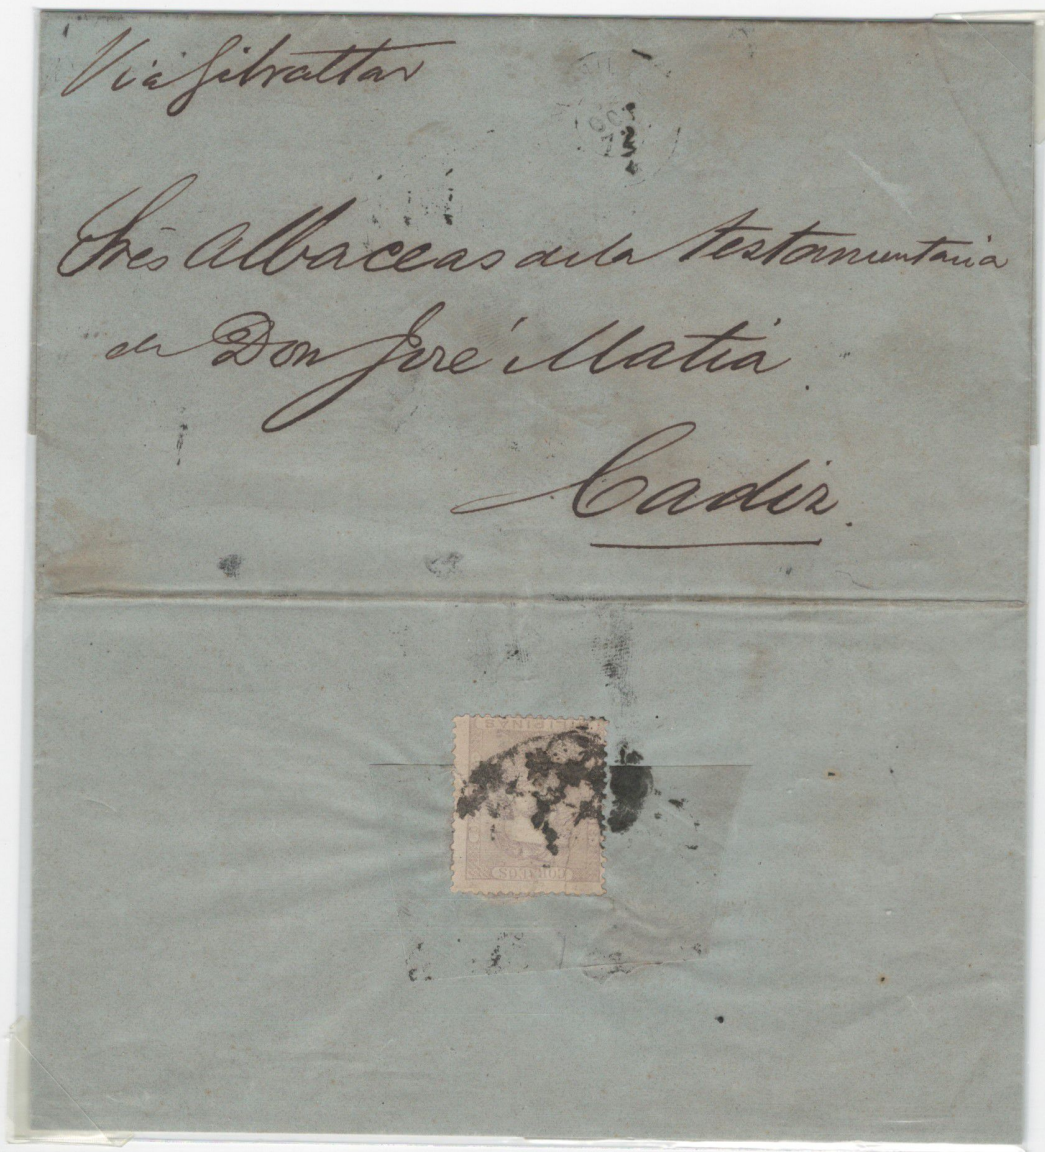 Via Gibraltar
OCT
73
Srēs Albaceas de la testamentaria
de Don José Matia
Cadiz.
FILIPINAS